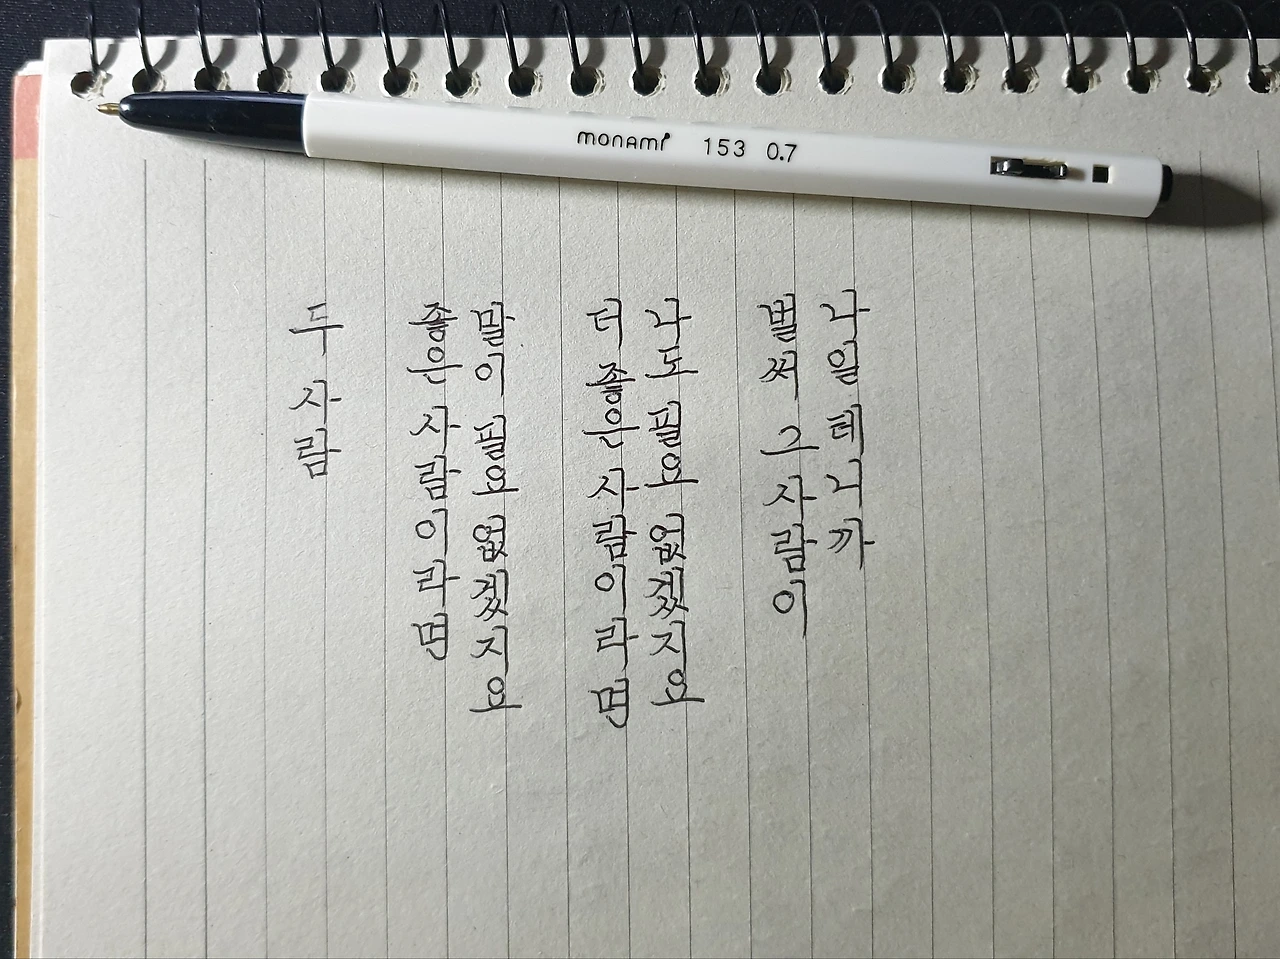 monami 153 0.7
두 사람
좋은 사람이라면
말이 필요 없겠지요
더 좋은 사람이라면
나도 필요 없겠지요
벌써 그 사람이
나일 테니까